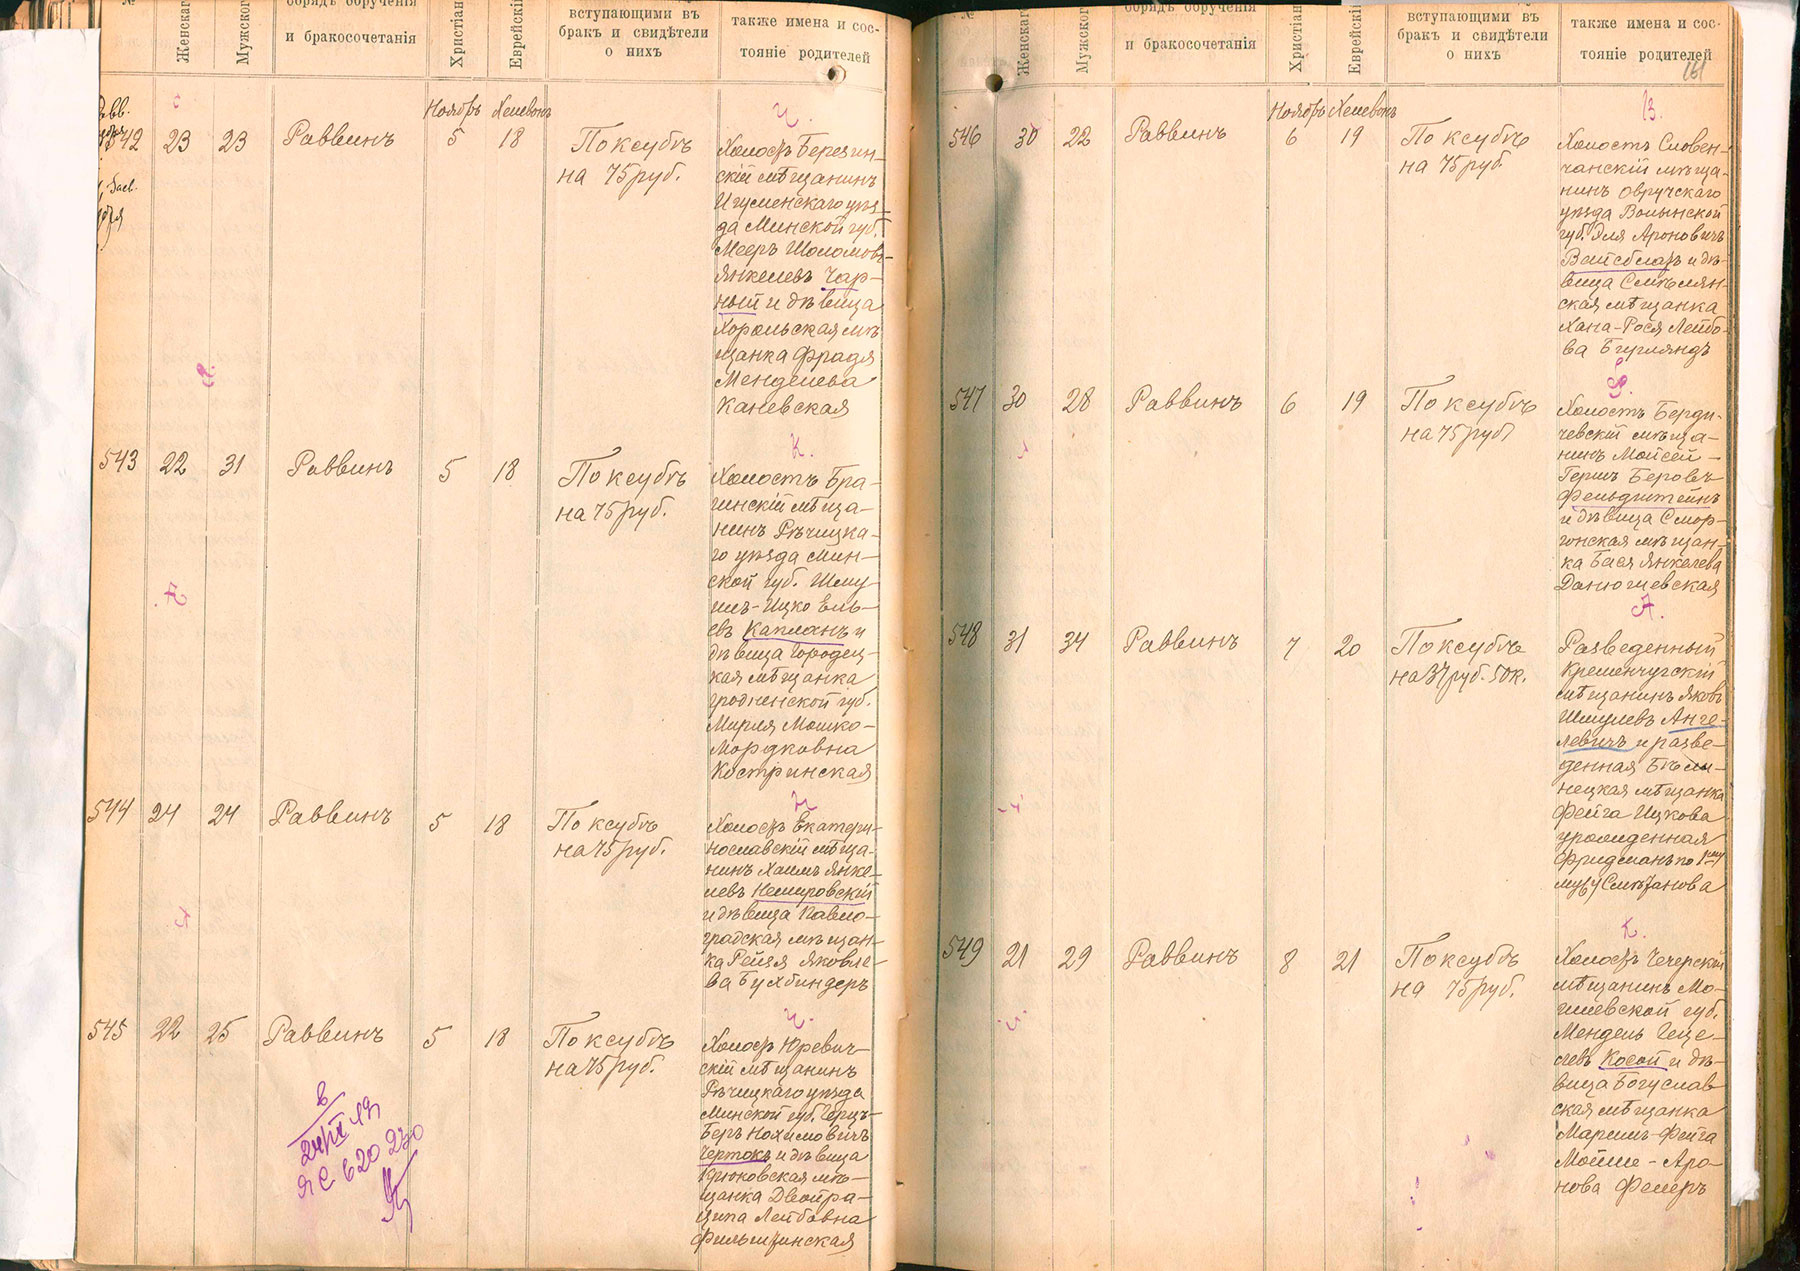 №
Женскаго
Мужского
обрядъ обрученія
и бракосочетанія
Христіан
Еврейскі
вступающими въ
бракъ и свидѣтели
о нихъ
также имена и сос-
тояніе родителей
Ноябрь Хешвонъ
Ч.
542 23 23 Раввинъ 5 18
По ксубѣ
на 75 руб.
Холостъ Березин-
скій мѣщанинъ
Игуменскаго уѣз-
да Минской губ.
Мееръ Шоломовъ-
Янкелевъ Чар-
ный и дѣвица
Хорольская мѣ-
щанка Фрадя
Менделева
Каневская
К.
543 22 31 Раввинъ 5 18
По ксубѣ
на 75 руб.
Холостъ Бра-
гинскій мѣща-
нинъ Рѣчицка-
го уѣзда Мин-
ской губ. Шму-
иль-Ицко Ель-
евъ Капланъ и
дѣвица Городец-
кая мѣщанка
Гродненской губ.
Мирля Мошко-
Мордковна
Костринская
Н
544 24 24 Раввинъ 5 18
По ксубѣ
на 75 руб.
Холостъ Екатери-
нославскій мѣща-
нинъ Хаимъ Янке-
левъ Немировскій
и дѣвица Павло-
градская мѣщан-
ка Рейзя Яковле-
ва Бухбиндеръ
Ч.
545 22 25 Раввинъ 5 18
По ксубѣ
на 75 руб.
Холостъ Юревич-
скій мѣщанинъ
Рѣчицкаго уѣзда
Минской губ. Герцъ-
Беръ Нохимовичъ
Чертокъ и дѣвица
Крюковская мѣ-
щанка Двойра-
Ципа Лейбовна
Фильшинская
ЯС 620270
№
Женскаго
Мужского
обрядъ обрученія
и бракосочетанія
Христіан
Еврейскі
вступающими въ
бракъ и свидѣтели
о нихъ
также имена и сос-
тояніе родителей
161
Ноябрь Хешвонъ
В.
546 30 22 Раввинъ 6 19
По ксубѣ
на 75 руб.
Холостъ Словен-
чанскій мѣща-
нинъ Овручскаго
уѣзда Волынской
губ. Эля Ароновичъ
Вайсблатъ и дѣ-
вица Смѣлян-
ская мѣщанка
Хана-Рося Лейбо-
ва Бурляндъ
Ф.
547 30 28 Раввинъ 6 19
По ксубѣ
на 75 руб
Холостъ Берди-
чевскій мѣща-
нинъ Мойсей-
Гершъ Беровъ
Фельдштейнъ
и дѣвица Смор-
гонская мѣщан-
ка Бася Янкелева
Данюшевская
А.
548 31 34 Раввинъ 7 20
По ксубѣ
на 37 руб. 50 к.
Разведенный
Кременчугскій
мѣщанинъ Яковъ
Шмулевъ Анге-
левичъ и разве-
денная Бѣли-
нецкая мѣщанка
Фейга Ицкова
урожденная
Фридманъ по 1му
мужу Смѣтанова
К.
549 21 29 Раввинъ 8 21
По ксубѣ
на 75 руб.
Холостъ Чечерскій
мѣщанинъ Мо-
гилевской губ.
Мендель Геце-
левъ Косой и дѣ-
вица Богуслав
ская мѣщанка
Маримъ-Фейга
Мойше-Аро-
нова Фелеръ